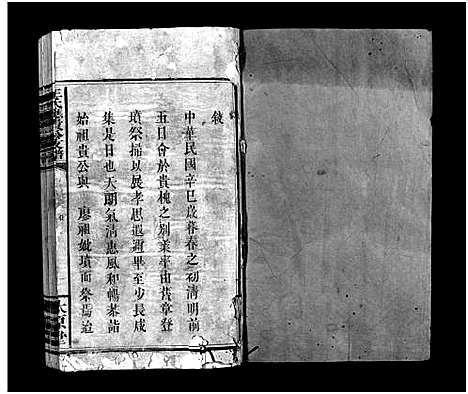 敍
中華民國辛巳歲暮春之初清明前
五日會於貴槐之別業率由舊章登
墳祭掃以展孝思遐邇畢至少長咸
集是日也天朗氣清惠風和暢恭詣
始祖貴公與 廖祖妣墳而祭焉迨
太原堂